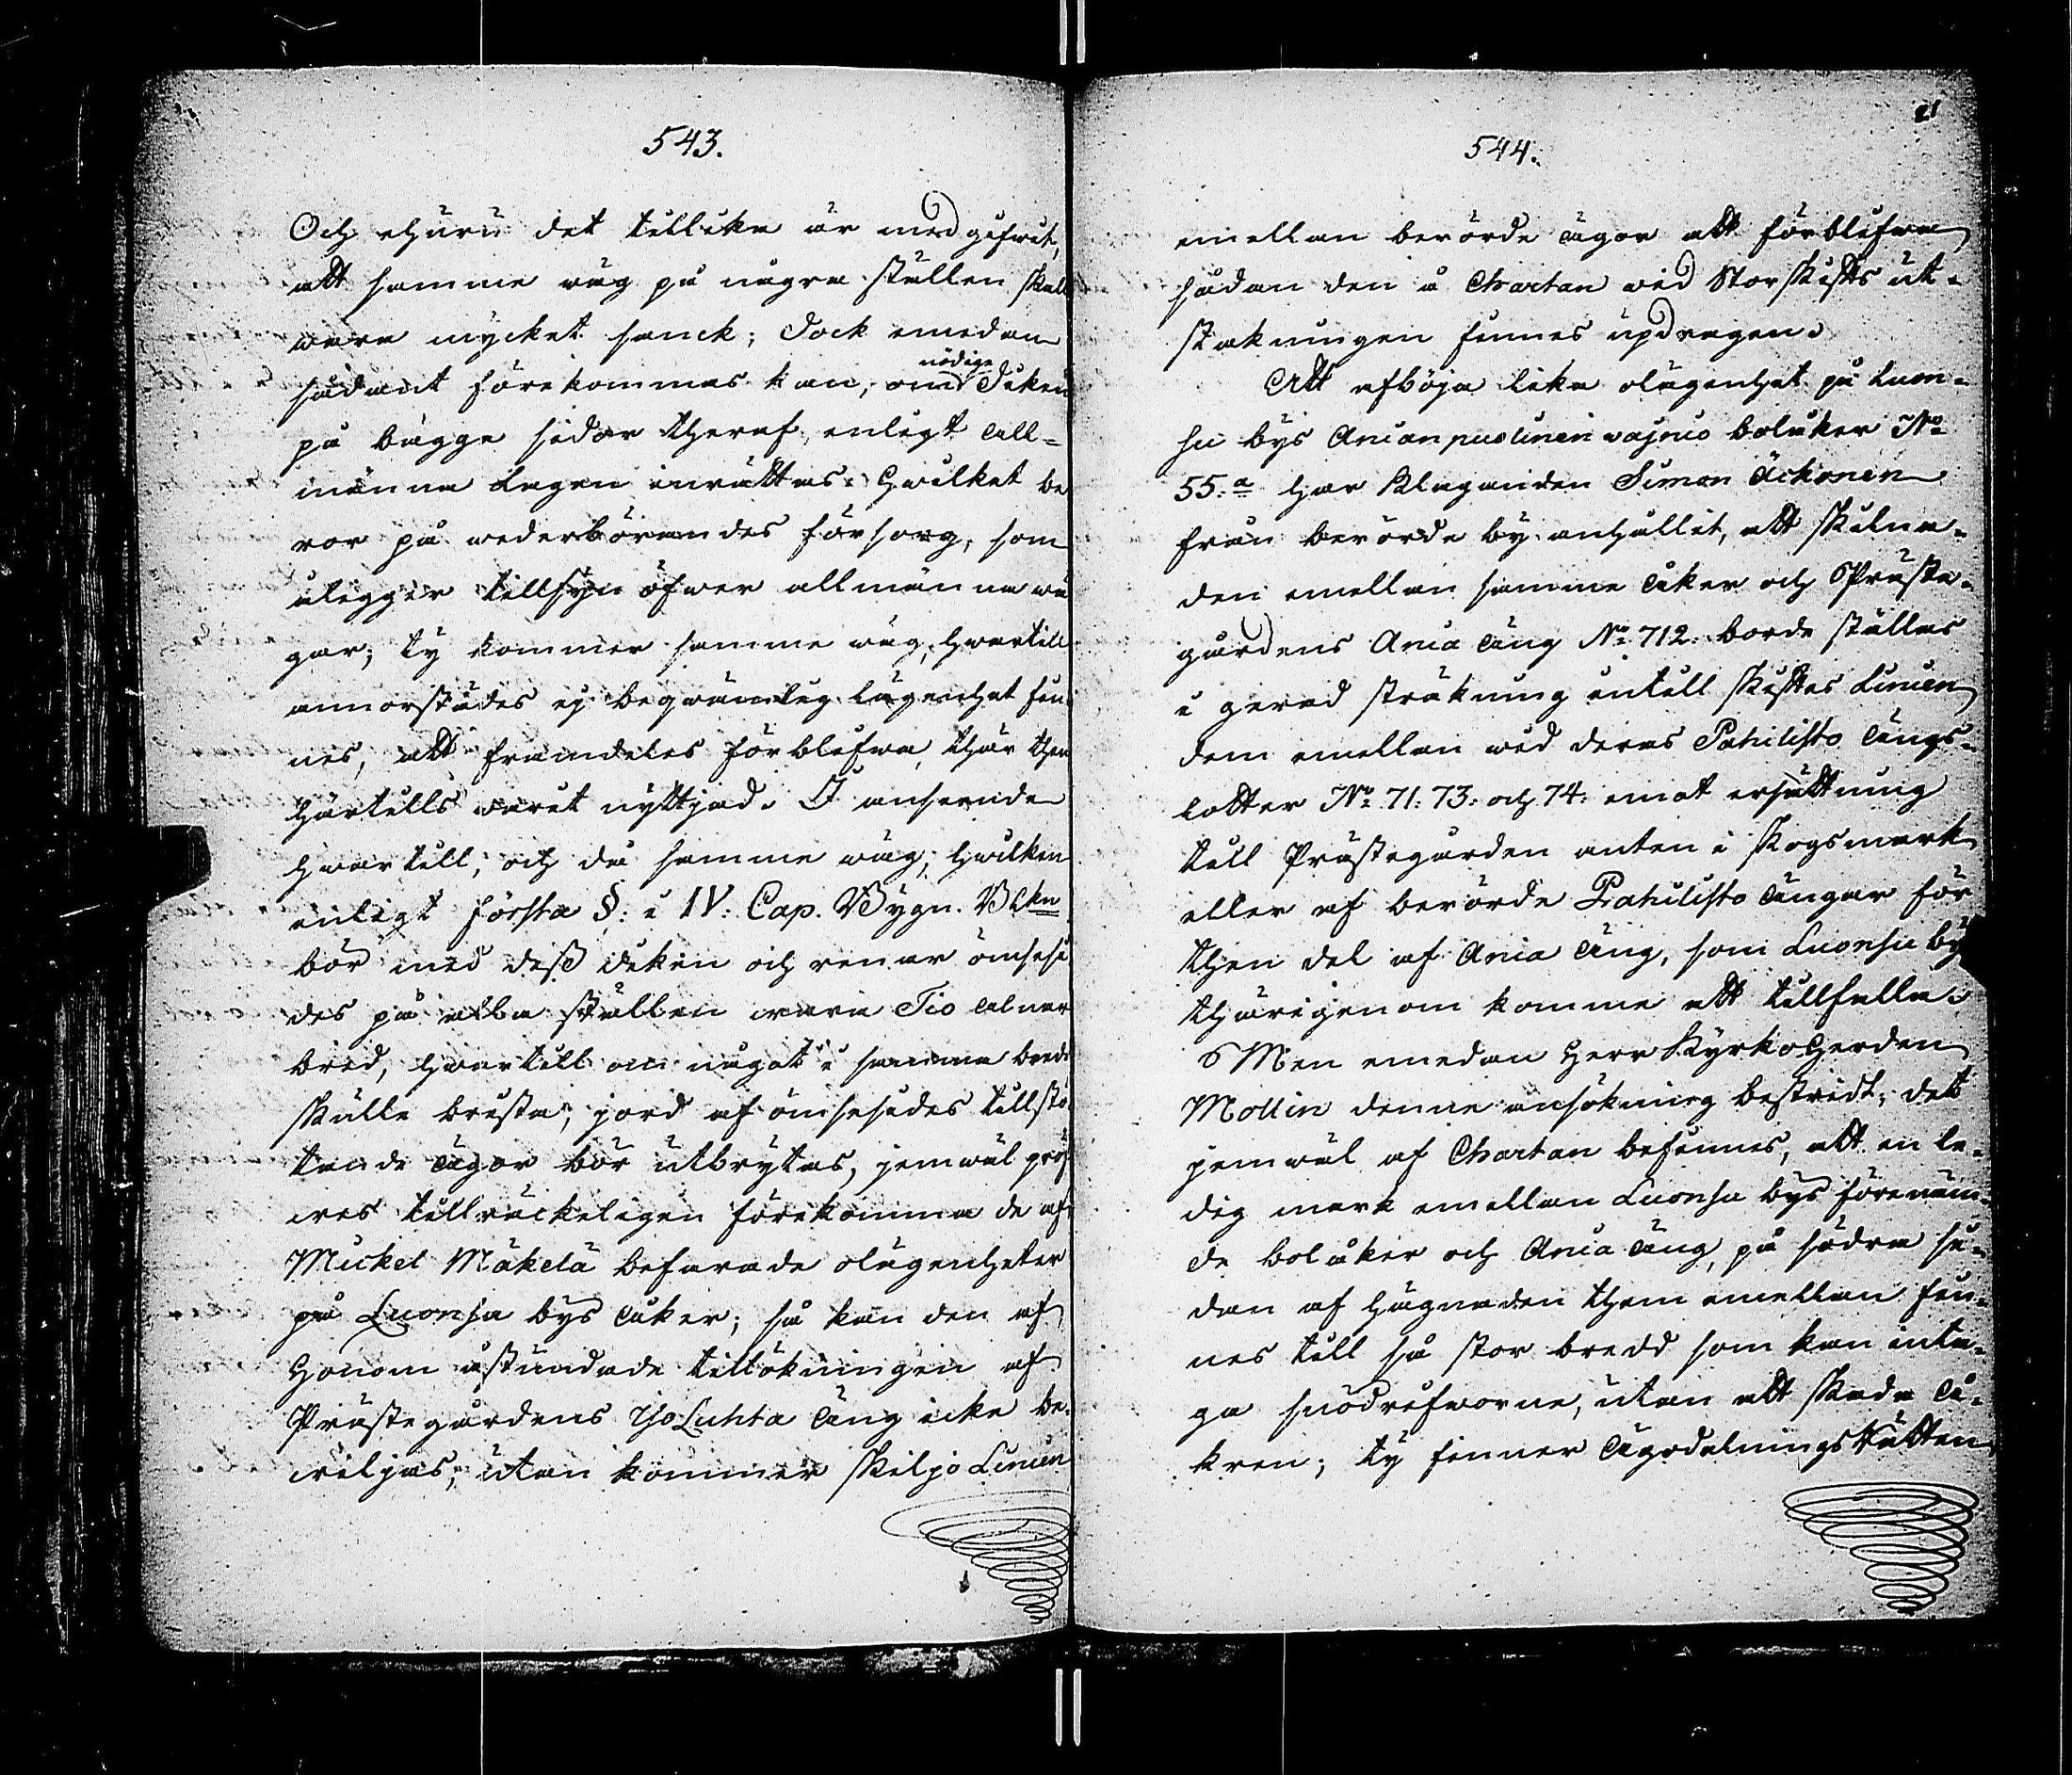 543.
Och ehuru det tillika är medgifwit,
att samme wäg på några ställen skall
wara mycket sanck; dock emedan
sådant förekommas kan, om nödige diken
på bägge sidor theraf, enligt All-
männa Lagen inrättas: hwilket be
ror på wederbörandes försorg, som
åligger tillsyn öfwer allmänna wä
gar; ty kommer samme wäg, hwartill
annorstädes ej beqwämlig lägenhet fin
nes, att framdeles förblifwa, thär then
härtills warit nyttjad. I anseende
hwartill, och då samme wäg, hwilken
enligt första §: i IV: Cap. Bygn. Blkn
bör med dess diken och renar ömsesi
des på alla ställen wara Tio alnar
bred, hwartill om något i samma bredd
skulle brista, jord af ömsesides tillstö
tande ägor bör utbrytas, jemwäl pröf
wes tillräckeligen förekomma de af
Mickel Mäkelä befarade olägenheter
på Luonsa bys åker; så kan den af
honom åstundade tillökningen af
Prästegårdens YsoLuhta äng icke be-
wiljas, utan kommer skiljo Linien
21
544.
emellan berörde ägor att förblifwa
sådan den å Chartan wid Storskifts ut-
stakningen finnes updragen.
Att afböja lika olägenhet på Luon-
su bys Anianpuolinen vajnio bolåker No
55.a har Klaganden Simon Äckonen
från berörde by anhållit, att skilna-
den emellan samme åker och Präste-
gårdens Ania äng No 712. borde ställas
i gerad sträkning intill skiftes Linien
dem emellan wid deras Pahilisto ängs-
lotter No 71: 73: och 74: emot ersättning
till Prästegården anten i skogsmark
eller af berörde Pahilisto ängar för
then del af Ania äng, som Luonsu by
thärigenom komme att tillfalla.
Men emedan Herr Kyrkoherden
Mollin denne ansökning bestridt; det
jemwäl af Chartan befinnes, att en le-
dig mark emellan Luonsu bys förenäm-
de bolåker och Ania äng, på södra si-
dan af hägnaden them emellan fin-
nes till så stor bredd som kan inta-
ga snödrifworne, utan att skada å-
kren; ty finner ÄgodelningsRätten